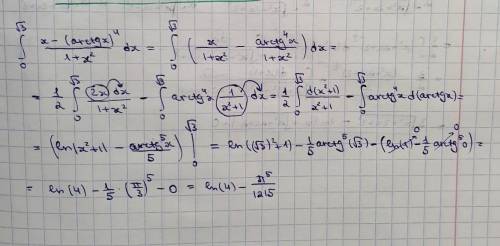 ∫₀^√3 (x - (arctgx)⁴)/(1+x²) dx = ∫₀^√3 (x/(1+x²) - arctg⁴x/(1+x²)) dx =
= 1/2 ∫₀^√3 (2x)dx/(1+x²) - ∫₀^√3 arctg⁴x (1/(x²+1)) dx = 1/2 ∫₀^√3 d(x²+1)/(x²+1) - ∫₀^√3 arctg⁴x d(arctgx) =
= (ln(x²+1) - arctg⁵x/5) |₀^√3 = ln((√3)²+1) - 1/5 arctg⁵(√3) - (ln(1)^0 - 1/5 arctg⁵0^0) =
= ln(4) - 1/5 · (π/3)⁵ - 0 = ln(4) - π⁵/1215